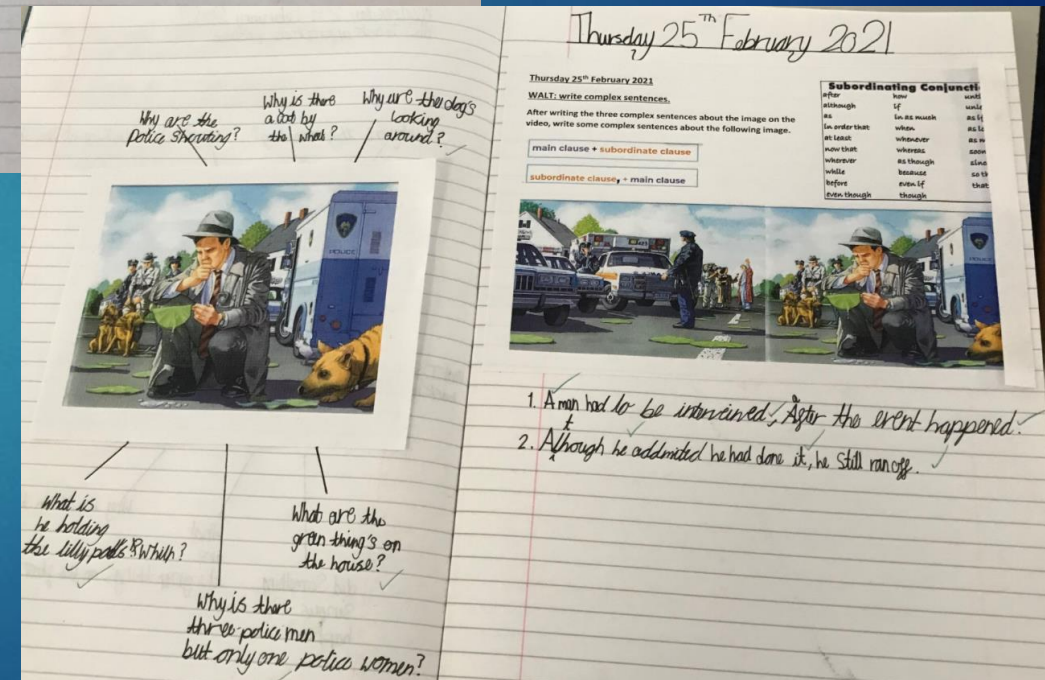 Why are the
Police Shouting?
Why is there
a cat by
the wheel?
Why are the dog's
looking
around?
POLICE
What is
he holding
the lilly pads? Which?
What are the
gren thing's on
the house?
Why is there
three police men
but only one police women?
Thursday 25th February 2021
Thursday 25th February 2021
WALT: write complex sentences.
After writing the three complex sentences about the image on the
video, write some complex sentences about the following image.
main clause + subordinate clause
subordinate clause, + main clause
Subordinating Conjuncti
after how
although if
as in as mush
in order that when
at least whenever
now that whereas
wherever as though
while because
before even if that
even though though
1. A man had to be interveined, After the event happened.
2. Although he addmited he had done it, he still ran off.